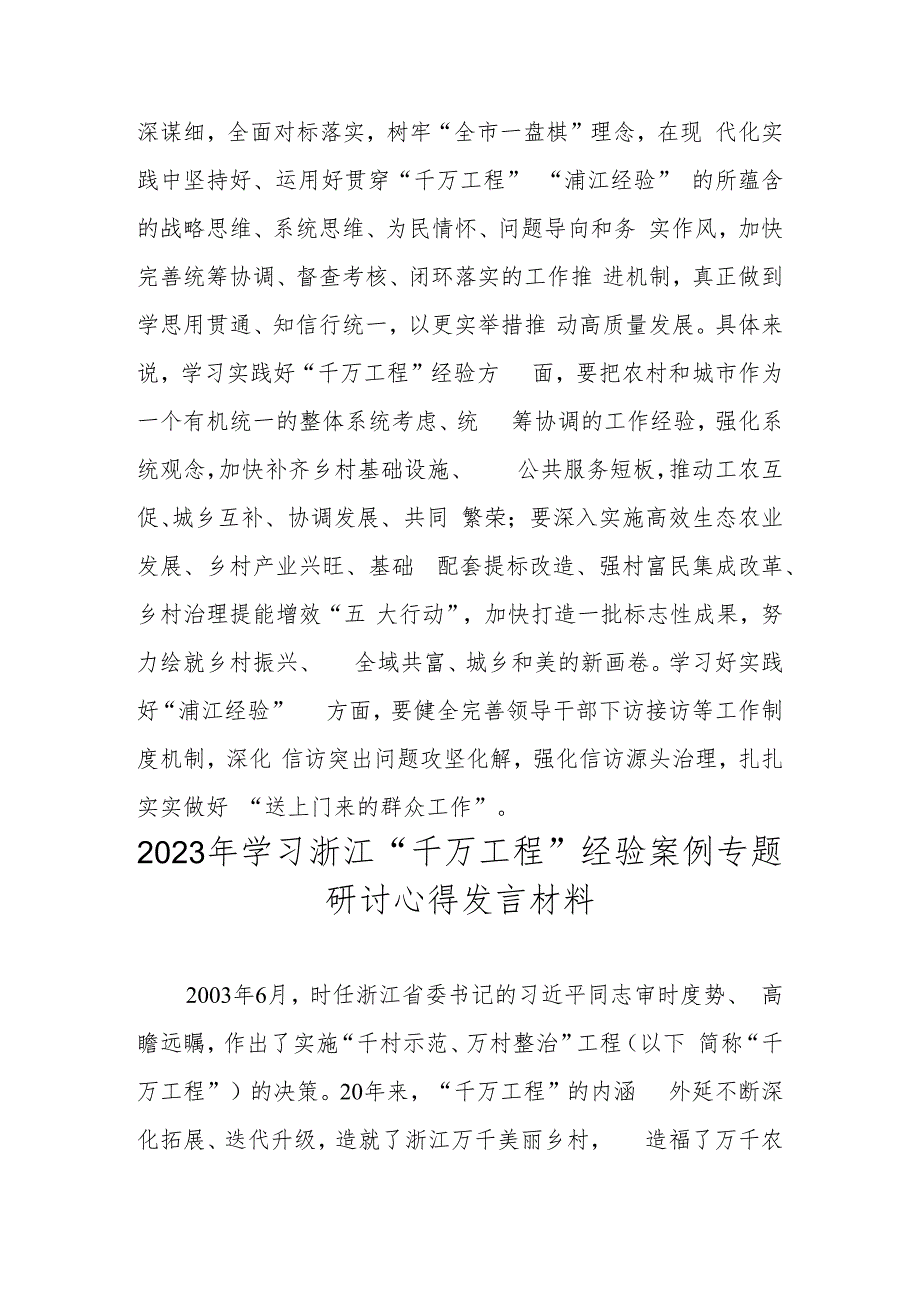 深谋细，全面对标落实，树牢“全市一盘棋”理念，在现 代化实
践中坚持好、运用好贯穿“千万工程” “浦江经验” 的所蕴含
的战略思维、系统思维、为民情怀、问题导向和务 实作风，加快
完善统筹协调、督查考核、闭环落实的工作推 进机制，真正做到
学思用贯通、知信行统一，以更实举措推 动高质量发展。具体来
说，学习实践好“千万工程”经验方 面，要把农村和城市作为
一个有机统一的整体系统考虑、统 筹协调的工作经验，强化系
统观念，加快补齐乡村基础设施、 公共服务短板，推动工农互
促、城乡互补、协调发展、共同 繁荣；要深入实施高效生态农业
发展、乡村产业兴旺、基础 配套提标改造、强村富民集成改革、
乡村治理提能增效“五 大行动”，加快打造一批标志性成果，努
力绘就乡村振兴、 全域共富、城乡和美的新画卷。学习好实践
好“浦江经验” 方面，要健全完善领导干部下访接访等工作制
度机制，深化 信访突出问题攻坚化解，强化信访源头治理，扎扎
实实做好 “送上门来的群众工作”。
2023年学习浙江“千万工程”经验案例专题
研讨心得发言材料
2003年6月，时任浙江省委书记的习近平同志审时度势、 高
瞻远瞩，作出了实施“千村示范、万村整治”工程（以下 简称“千
万工程”）的决策。20年来，“千万工程”的内涵 外延不断深
化拓展、迭代升级，造就了浙江万千美丽乡村， 造福了万千农